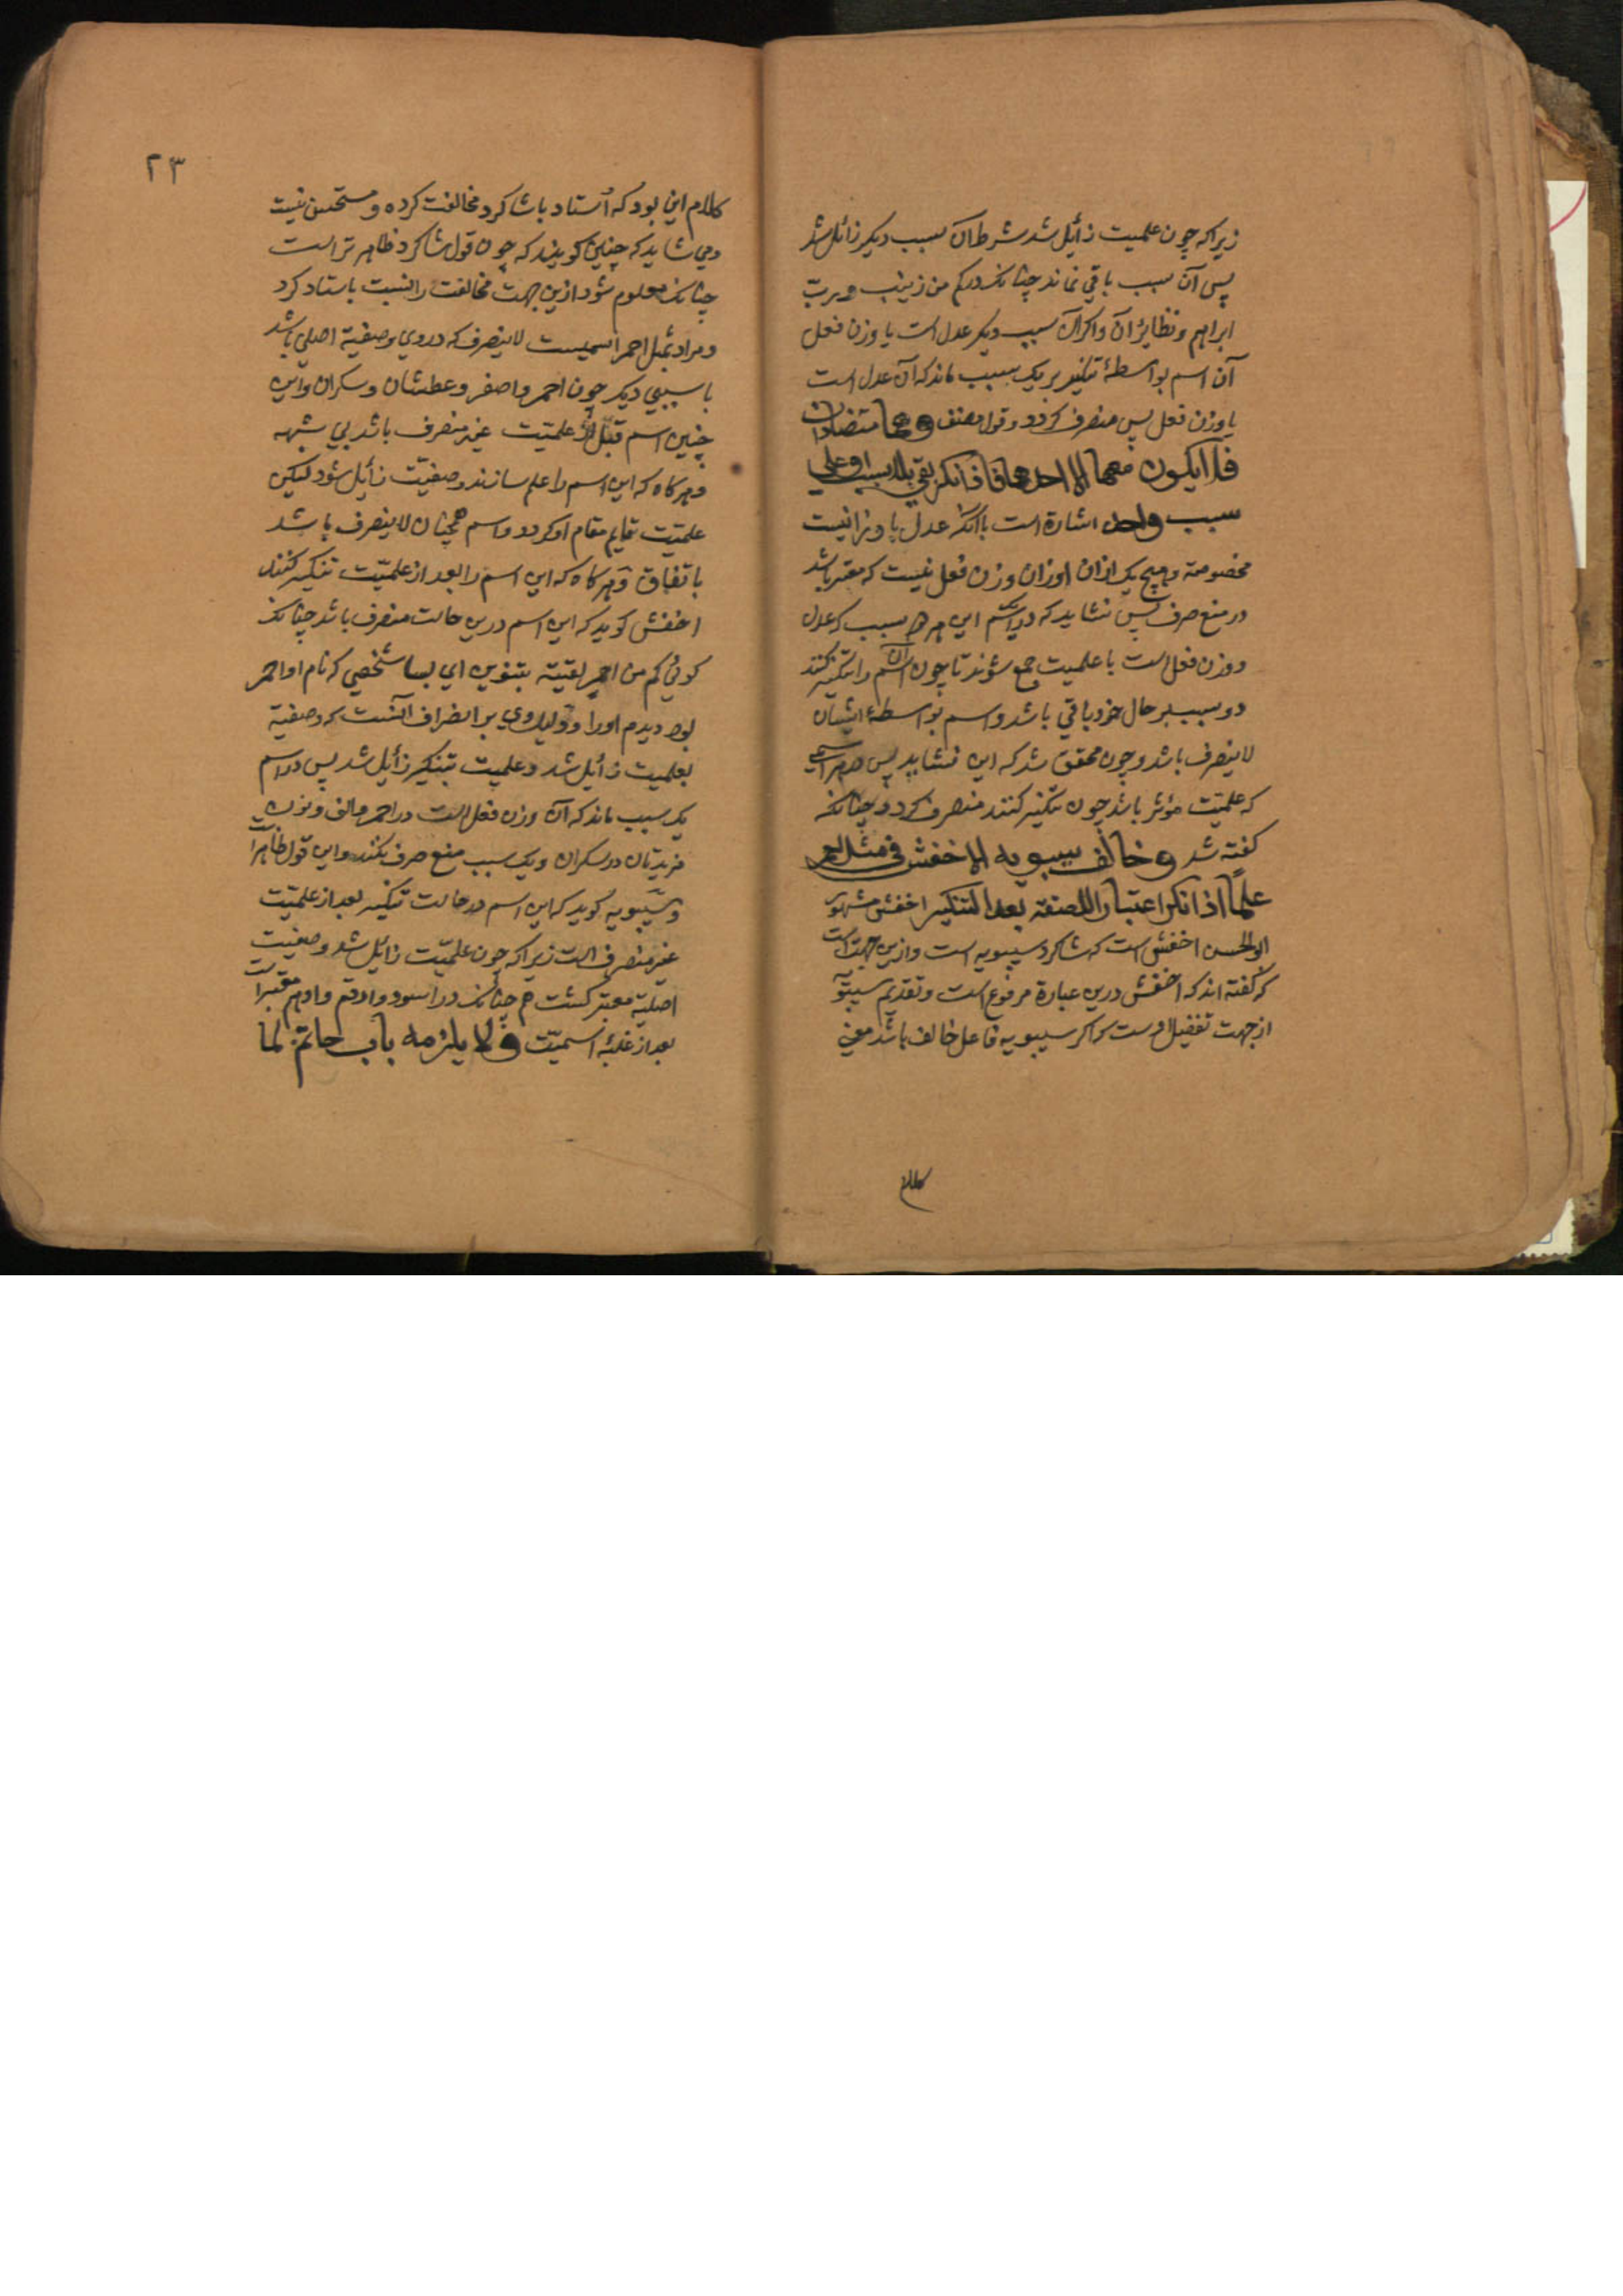 زیراکه چون علمیت زایل شد شرط آن سبب دیکر زائل شد
پس آن سبب باقی نماند چنانک در کم من زینب و رب
ابراهیم و نظایر آن و اکر آن سبب دیکر عدل است یا وزن فعل
آن اسم بواسطهٔ تنکیر بر یک سبب ماند که آن عدل است
یا وزن فعل پس منصرف کردد و قول مصنف وهما متضادان
فلا یکون معها الا احدهما فاذا نکر بقی بلا سبب او علی
سبب واحد اشارة است باآنکه عدل یا وزانیست
مخصوصة و هیچ یک ازان اوزان وزن فعل نیست که معتبر باشد
در منع صرف پس نشاید که در اسم این هر دو سبب که عدل
و وزن فعل است با علمیت جمع شوند تا چون آن اسم را تنکیر کنند
دو سبب بر حال خود باقی باشد و اسم بواسطهٔ ایشان
لاینصرف باشد و چون محقق شد که این نشاید پس هر اسمی
که علمیت مؤثر باشد چون تنکیر کنند منصرف کردد چنانکه
کفته شد وخالف سیبویه الاخفش فی مثل احمر
علمًا اذا نکر اعتبارا للصفة بعد التنکیر اخفش مشهور
ابوالحسن اخفش است که شاکرد سیبویه است و ازین جهت است
که کفته اند که اخفش درین عبارة مرفوع است و تقدیم سیبویه
از جهت تفضیل اوست که اکر سیبویه فاعل خالف باشد معنی
کلام
۲۳
کلام این بود که اُستاد با شاکرد مخالفت کرده و مستحسن نیست
و می شاید که چنین کویند که چون قول شاکرد ظاهر تر است
چنانک معلوم شود ازین جهت مخالفت را نسبت باستاد کرد
و مراد بمثل احمر اسمیست لاینصرف که در وی وصفیة اصلی باشد
با سببی دیکر چون احمر و اصفر و عطشان و سکران و این
چنین اسم قبل از علمیّت غیر منصرف باشد بی شبهه
و هرکاه که این اسم را علم سازند وصفیّت زایل شود لیکن
علمیّت قایم مقام او کردد و اسم همچنان لاینصرف باشد
باتفاق و هرکاه که این اسم را بعد از علمیّت تنکیر کنند
اخفش کوید که این اسم درین حالت منصرف باشد چنانک
کوئی کم من احمرٍ لقیته بتنوین ای بسا شخصی که نام او احمر
بود دیدم او را و دلیل وی بر انصراف آنست که وصفیة
بعلمیت زائل شد و علمیت بتنکیر زائل شد پس در اسم
یک سبب ماند که آن وزن فعل است در احمر و الف و نون
مزیدتان در سکران و یک سبب منع صرف نکند و این قول ظاهر است
و سیبویه کوید که این اسم در حالت تنکیر بعد از علمیّت
غیر منصرف است زیرا که چون علمیّت زایل شد وصفیت
اصلیة معتبر کشت چنانک در اسود و ارقم و ادهم معتبر است
بعد از غلبهٔ اسمیّت ولا یلزمه باب حاتم لما